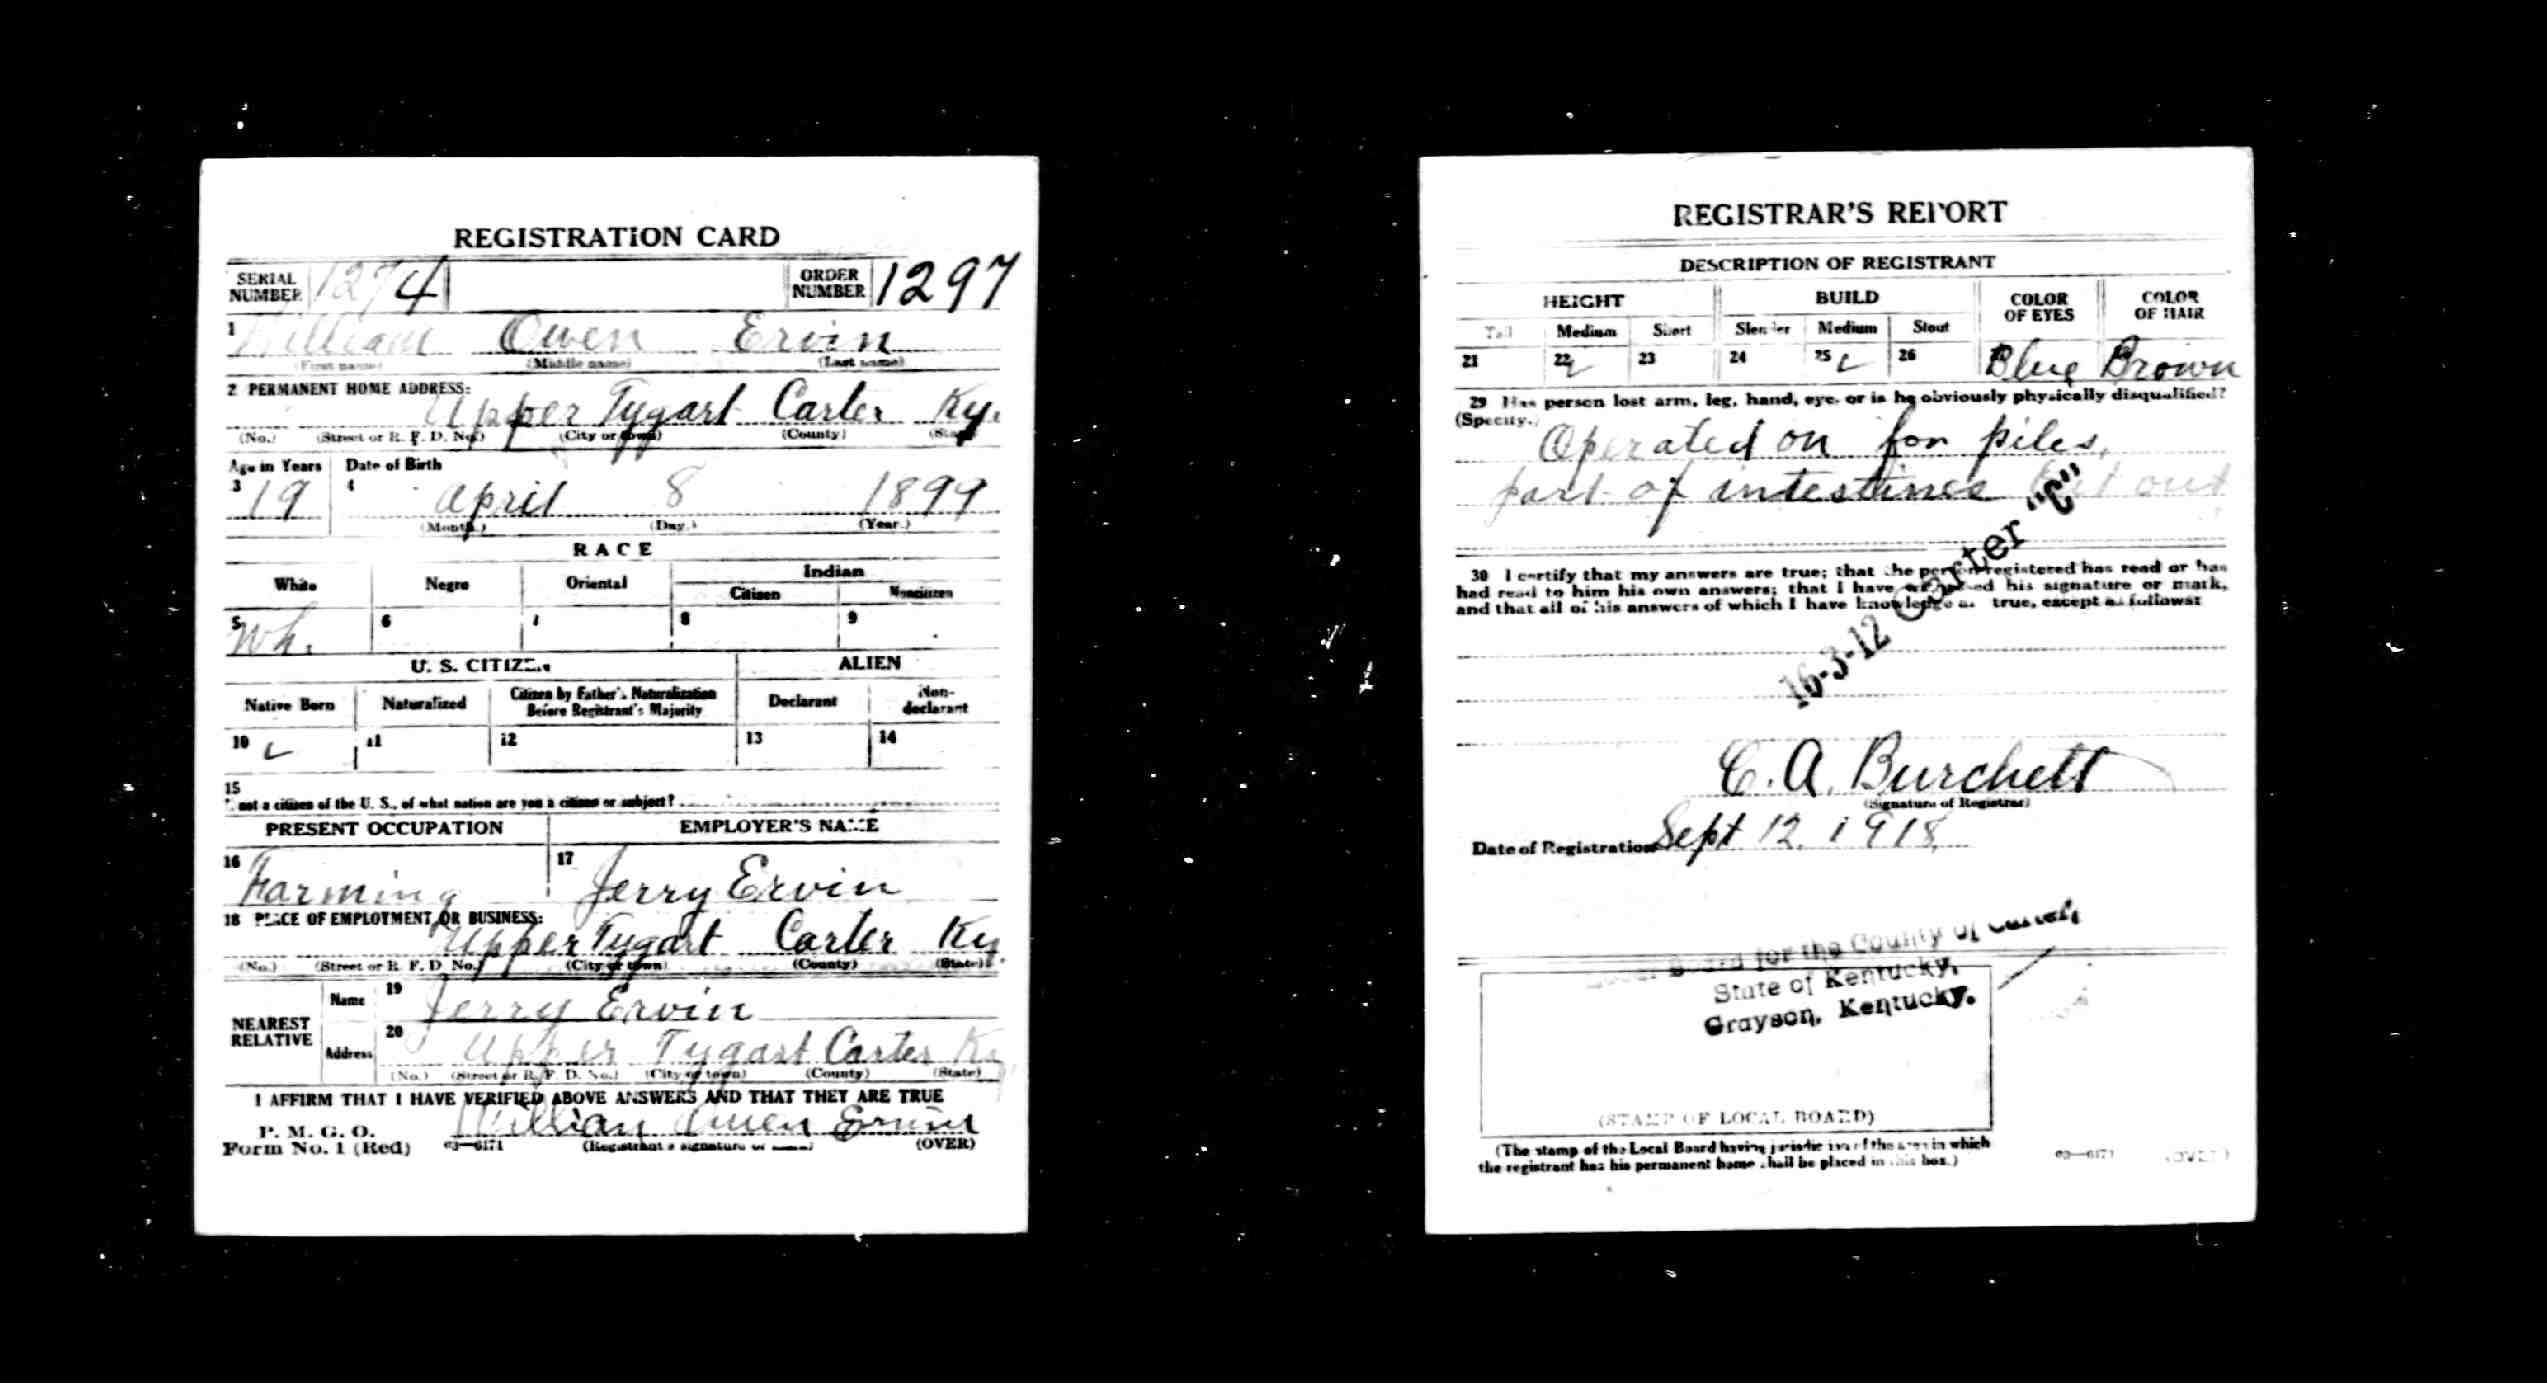 REGISTRATION CARD
SERIAL NUMBER 1274 ORDER NUMBER 1297
1 William Owen Ervin
(First name) (Middle name) (Last name)
2 PERMANENT HOME ADDRESS:
Upper Tygart Carter Ky.
(No.) (Street or R. F. D. No.) (City or town) (County) (State)
Age in Years Date of Birth
3 19 4 April 8 1899
(Month.) (Day.) (Year.)
RACE
White Negro Oriental Indian
Citizen Noncitizen
5 Wh. 6 7 8 9
U. S. CITIZEN ALIEN
Native Born Naturalized Citizen by Father's Naturalization Before Registrant's Majority Declarant Non-declarant
10 11 12 13 14
15
If not a citizen of the U. S., of what nation are you a citizen or subject?
PRESENT OCCUPATION EMPLOYER'S NAME
16 Farming 17 Jerry Ervin
18 PLACE OF EMPLOYMENT OR BUSINESS:
Upper Tygart Carter Ky
(No.) (Street or R. F. D. No.) (City or town) (County) (State)
NEAREST RELATIVE Name 19 Jerry Ervin
Address 20 Upper Tygart Carter Ky
(No.) (Street or R. F. D. No.) (City or town) (County) (State)
I AFFIRM THAT I HAVE VERIFIED ABOVE ANSWERS AND THAT THEY ARE TRUE
P. M. G. O.
Form No. 1 (Red) 03—6171 William Owen Ervin (OVER)
(Registrant's signature or mark)
REGISTRAR'S REPORT
DESCRIPTION OF REGISTRANT
HEIGHT BUILD COLOR OF EYES COLOR OF HAIR
Tall Medium Short Slender Medium Stout
21 22 23 24 25 26 Blue Brown
29 Has person lost arm, leg, hand, eye, or is he obviously physically disqualified?
(Specify.)
Operated on for piles,
part of intestines cut out
30 I certify that my answers are true; that the person registered has read or has
had read to him his own answers; that I have witnessed his signature or mark,
and that all of his answers of which I have knowledge are true, except as follows:
16-3-12 Carter "C"
C. A. Burchett
(Signature of Registrar)
Date of Registration Sept 12, 1918
Local Board for the County of Carter,
State of Kentucky,
Grayson, Kentucky.
(STAMP OF LOCAL BOARD)
(The stamp of the Local Board having jurisdiction of the area in which
the registrant has his permanent home shall be placed in this box.)
03—6171 (OVER)